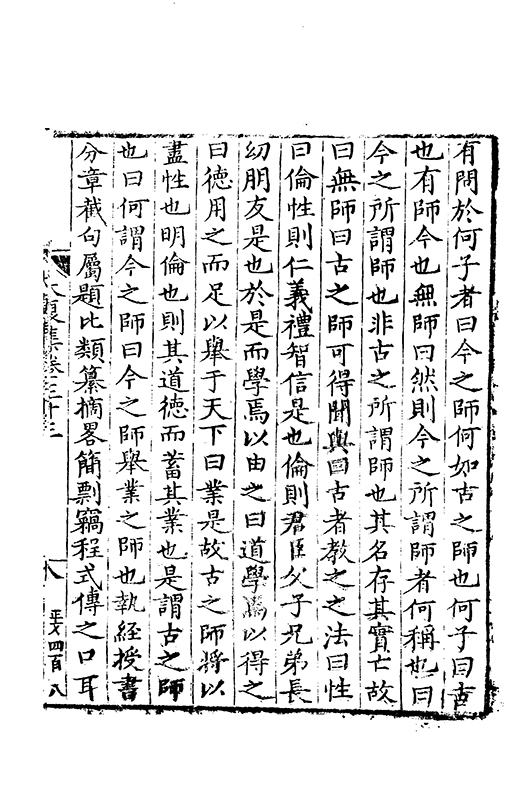 有問於何子者曰今之師何如古之師也何子曰古
也有師今也無師曰然則今之所謂師者何稱也曰
今之所謂師也非古之所謂師也其名存其實亡故
曰無師曰古之師可得聞與曰古者教之之法曰性
曰倫性則仁義禮智信是也倫則君臣父子兄弟長
幼朋友是也於是而學焉以由之曰道學焉以得之
曰德用之而足以舉于天下曰業是故古之師將以
盡性也明倫也則其道德而蓄其業也是謂古之師
也曰何謂今之師曰今之師舉業之師也執經授書
分章截句屬題比類纂摘畧簡剽竊程式傳之口耳
大復集卷三十三
八
四百八